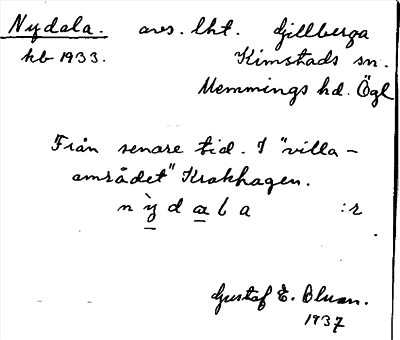 Nydala. avs. lht. Gillberga
kb 1933. Kimstads sn.
Memmings hd. Ögl
Från senare tid. I "villa-
området" Krokhagen.
n ỳ d a l a :r
Gustaf E. Bluan.
1937